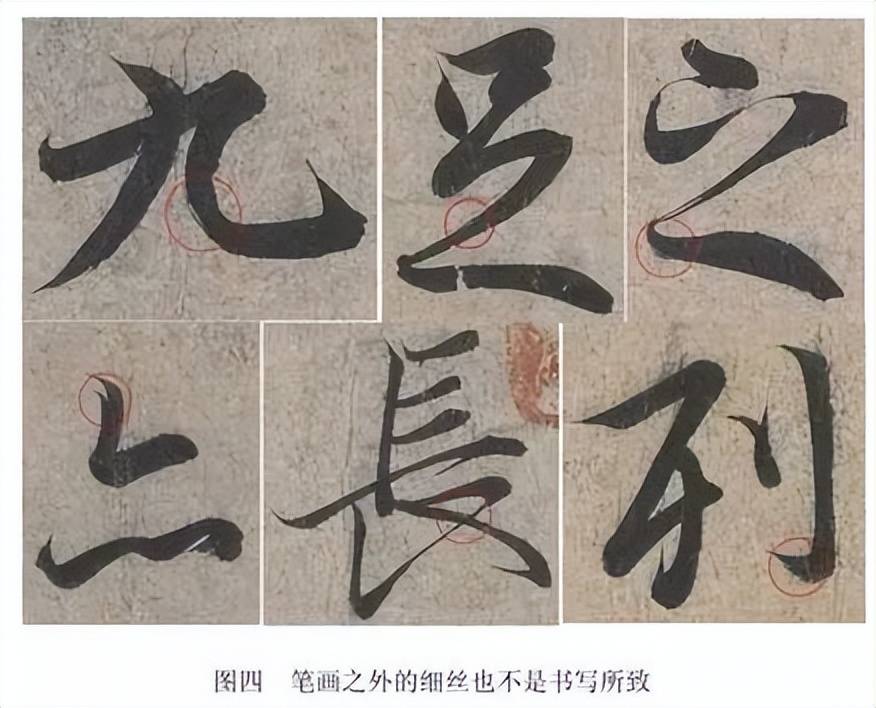 九 足 之
亦 長 列
图四 笔画之外的细丝也不是书写所致